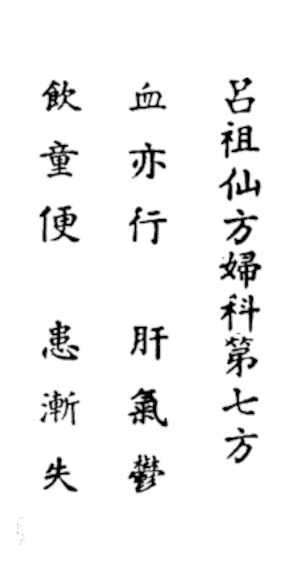 呂祖仙方婦科第七方
血亦行　肝氣鬱
飲童便　患漸失